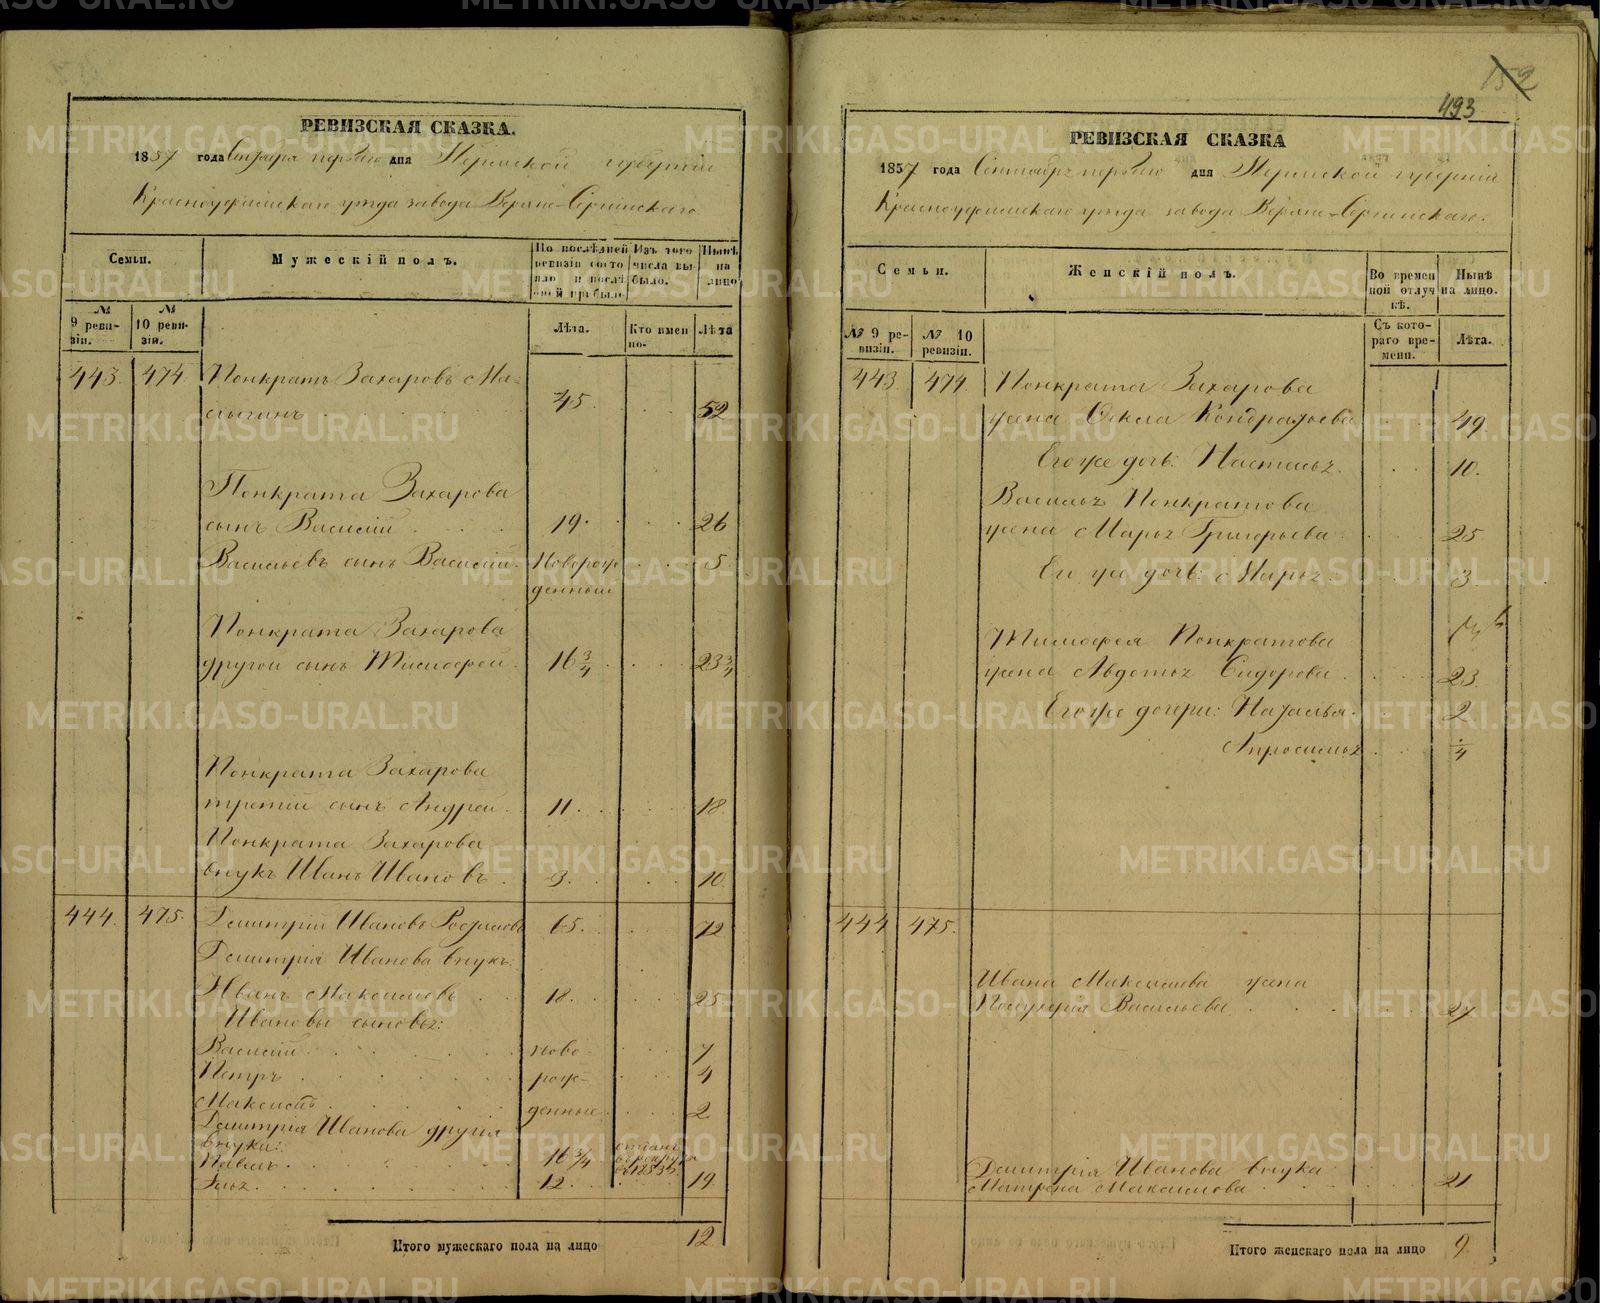 РЕВИЗСКАЯ СКАЗКА.
1857 года Сентября перваго дня Пермской губерніи
Красноуфимскаго уѣзда завода Верхне-Сергинскаго
Семьи.
Мужескій полъ.
По послѣдней ревизіи состояло и послѣ оной прибыло
Изъ того числа выбыло.
Нынѣ на лицо
№ 9 ревизіи.
№ 10 ревизіи.
Лѣта.
Кто имен но.
Лѣта
443. 474. Понкратъ Захаровъ
45. 52
Понкрата Захарова
сынъ Василій 19. 26
Васильевъ сынъ Василій Новорож 5.
денный
Понкрата Захарова
другой сынъ Тимофей 16 3/4 23 3/4
Понкрата Захарова
третій сынъ Андрей 11. 18.
Понкрата Захарова
внукъ Иванъ Ивановъ 3. 10.
444. 475. Дмитрій Ивановъ 65. 72
Дмитрія Иванова внукъ:
Иванъ Максимовъ 18. 25.
Ивановы сыновья:
Василій ново 7
Петръ рож- 4
Максимъ денные 2
Дмитрія Иванова другія
внуки:
Павелъ 16 3/4
Илья 12. 19.
Итого мужескаго пола на лицо 12
152
493
РЕВИЗСКАЯ СКАЗКА
1857 года Сентября перваго дня Пермской губерніи
Красноуфимскаго уѣзда завода Верхне-Сергинскаго.
Семьи.
Женскій полъ.
Во времен ной отлуч кѣ.
Нынѣ на лицо.
№ 9 ревизіи.
№ 10 ревизіи.
Съ кото- раго вре- мени.
Лѣта.
443 474. Понкрата Захарова
жена Фекла Кондратьева 49.
Его же дочь: Настасья 10.
Василья Понкратова
жена Марья Григорьева 25
Его же дочь: Марья 3
Тимофея Понкратова
жена Авдотья Сидорова 23.
Его же дочери: Наталья 2
Апросинья 1/4
444 475.
Ивана Максимова жена
Васильева 27
Дмитрія Иванова внука
Матрена Максимова 21
Итого женскаго пола на лицо 9.
METRIKI.GASO-URAL.RU